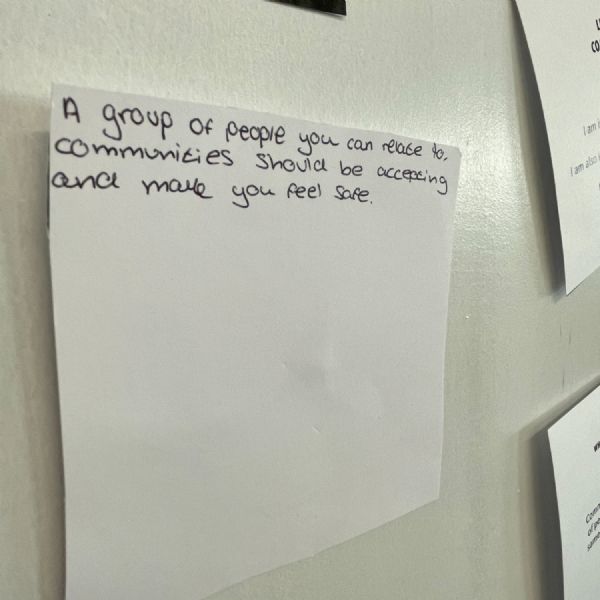 A group of people you can relate to.
communities should be accepting
and make you feel safe.
I am
I am also